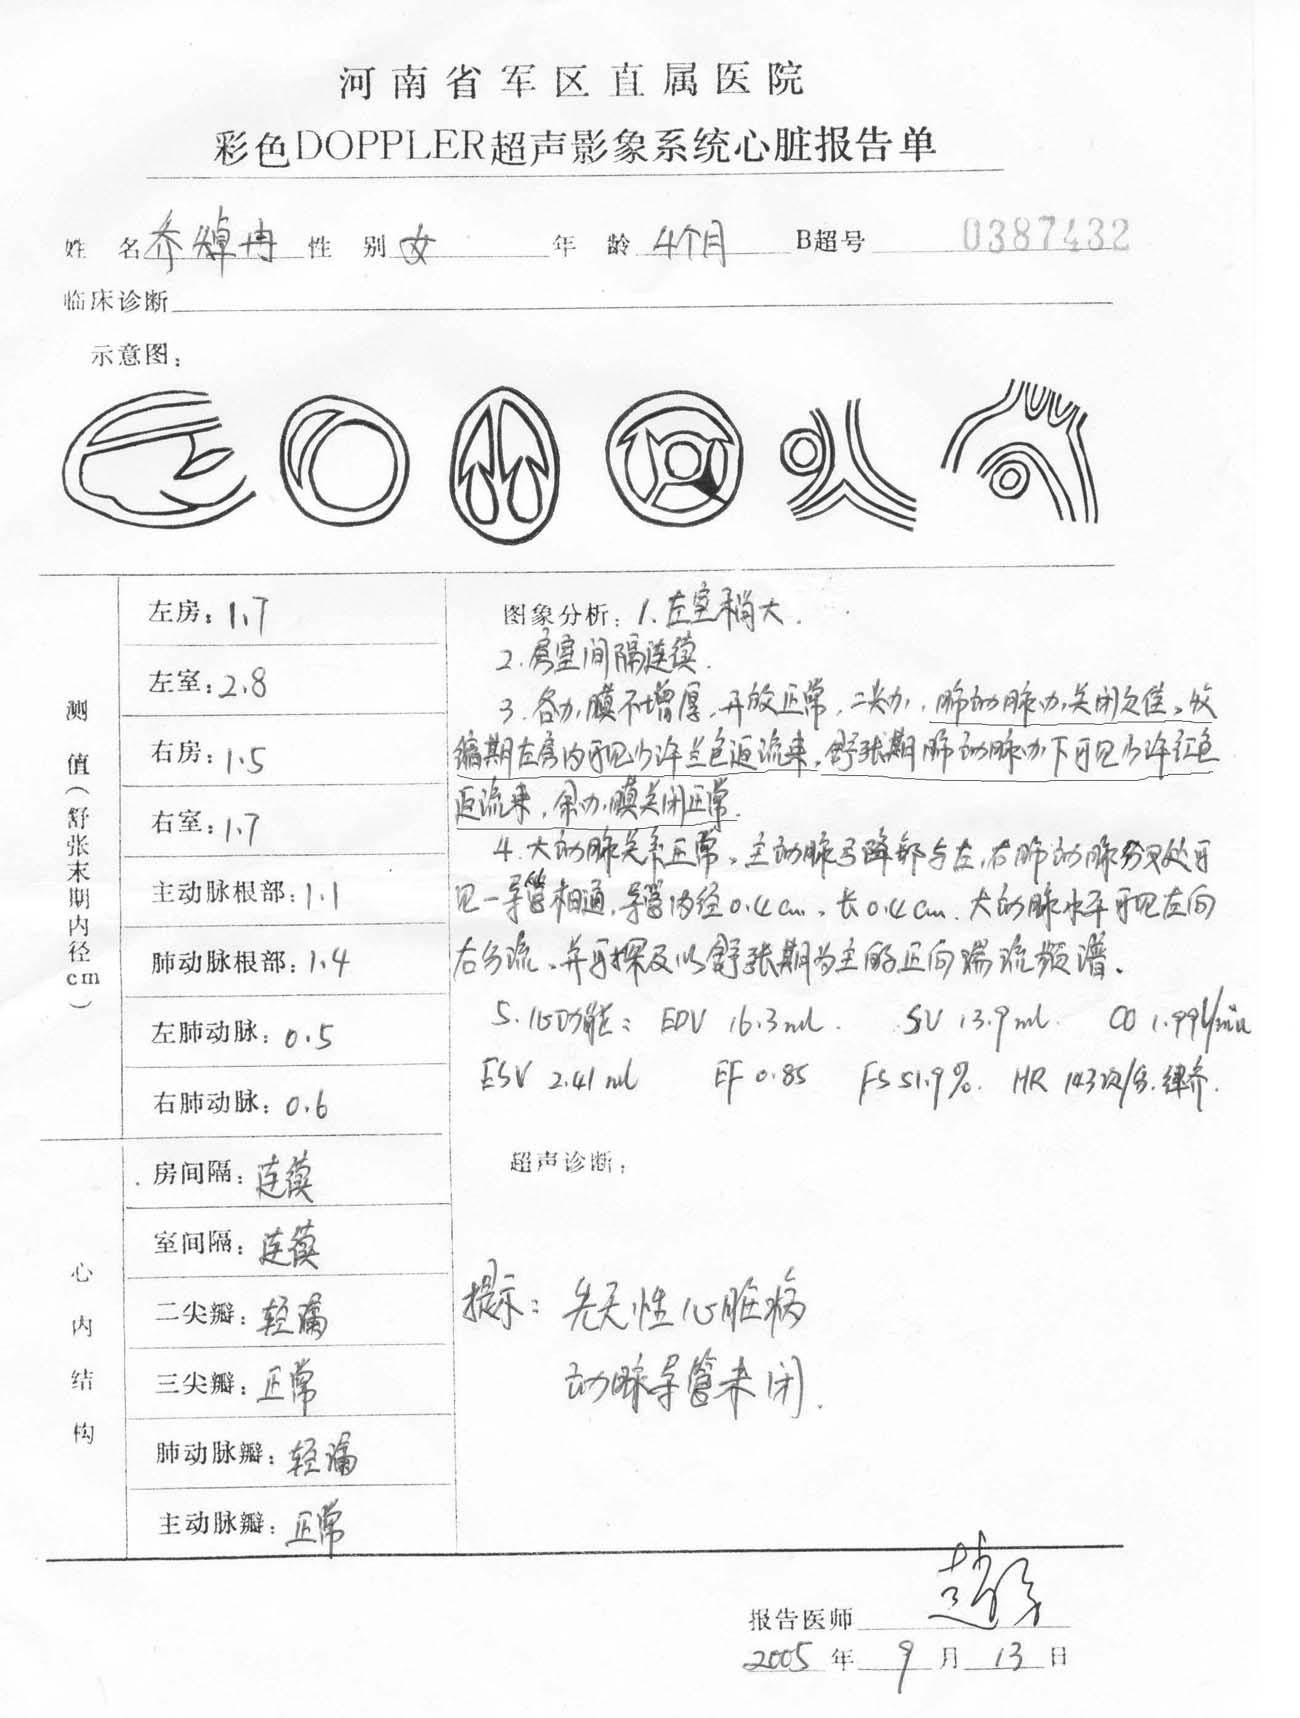 河南省军区直属医院
彩色DOPPLER超声影象系统心脏报告单
姓 名 乔 冉 性 别 女 年 龄 4个月 B超号 0387432
临床诊断
示意图:
测值(舒张末期内径cm)
左房: 1.7
左室: 2.8
右房: 1.5
右室: 1.7
主动脉根部: 1.1
肺动脉根部: 1.4
左肺动脉: 0.5
右肺动脉: 0.6
心内结构
房间隔: 连续
室间隔: 连续
二尖瓣: 轻漏
三尖瓣: 正常
肺动脉瓣: 轻漏
主动脉瓣: 正常
图象分析: 1.左室稍大.
2.房室间隔连续.
3.各办膜不增厚,开放正常,二尖办,肺动脉办关闭欠佳,收
缩期左房内可见少许兰色返流束,舒张期肺动脉办下可见少许红色
返流束,余办膜关闭正常.
4.大动脉关系正常,主动脉弓降部与左,右肺动脉分叉处可
见一导管相通,导管内径0.4cm,长0.4cm.大动脉水平可见左向
右分流,并可探及以舒张期为主的正向湍流频谱.
5.心功能: EDV 16.3ml. SV 13.9ml. CO 1.99L/min
ESV 2.41ml EF 0.85 FS 51.9%. HR 143次/分.律齐.
超声诊断:
提示: 先天性心脏病
动脉导管未闭.
报告医师
2005年9月13日